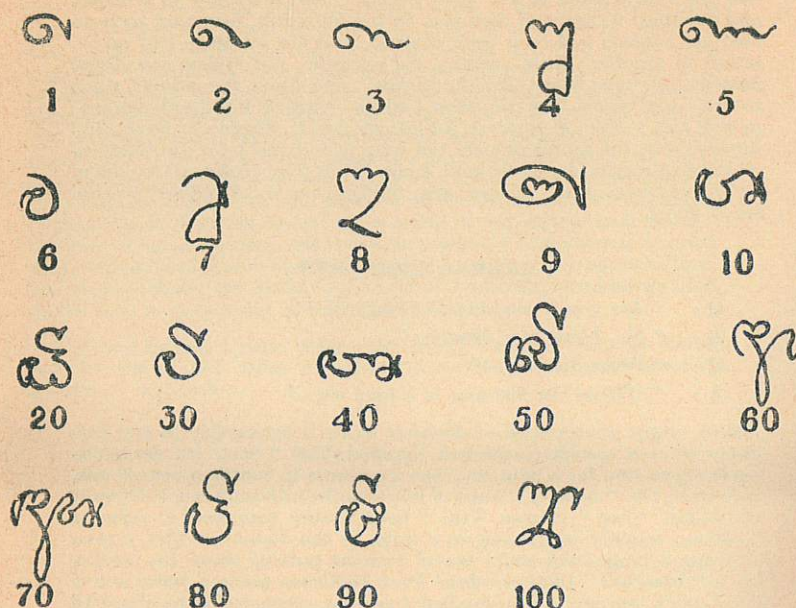 𑇡 𑇢 𑇣 𑇤 𑇥
1 2 3 4 5
𑇦 𑇧 𑇨 𑇩 𑇪
6 7 8 9 10
𑇫 𑇬 𑇭 𑇮 𑇯
20 30 40 50 60
𑇰 𑇱 𑇲 𑇳
70 80 90 100